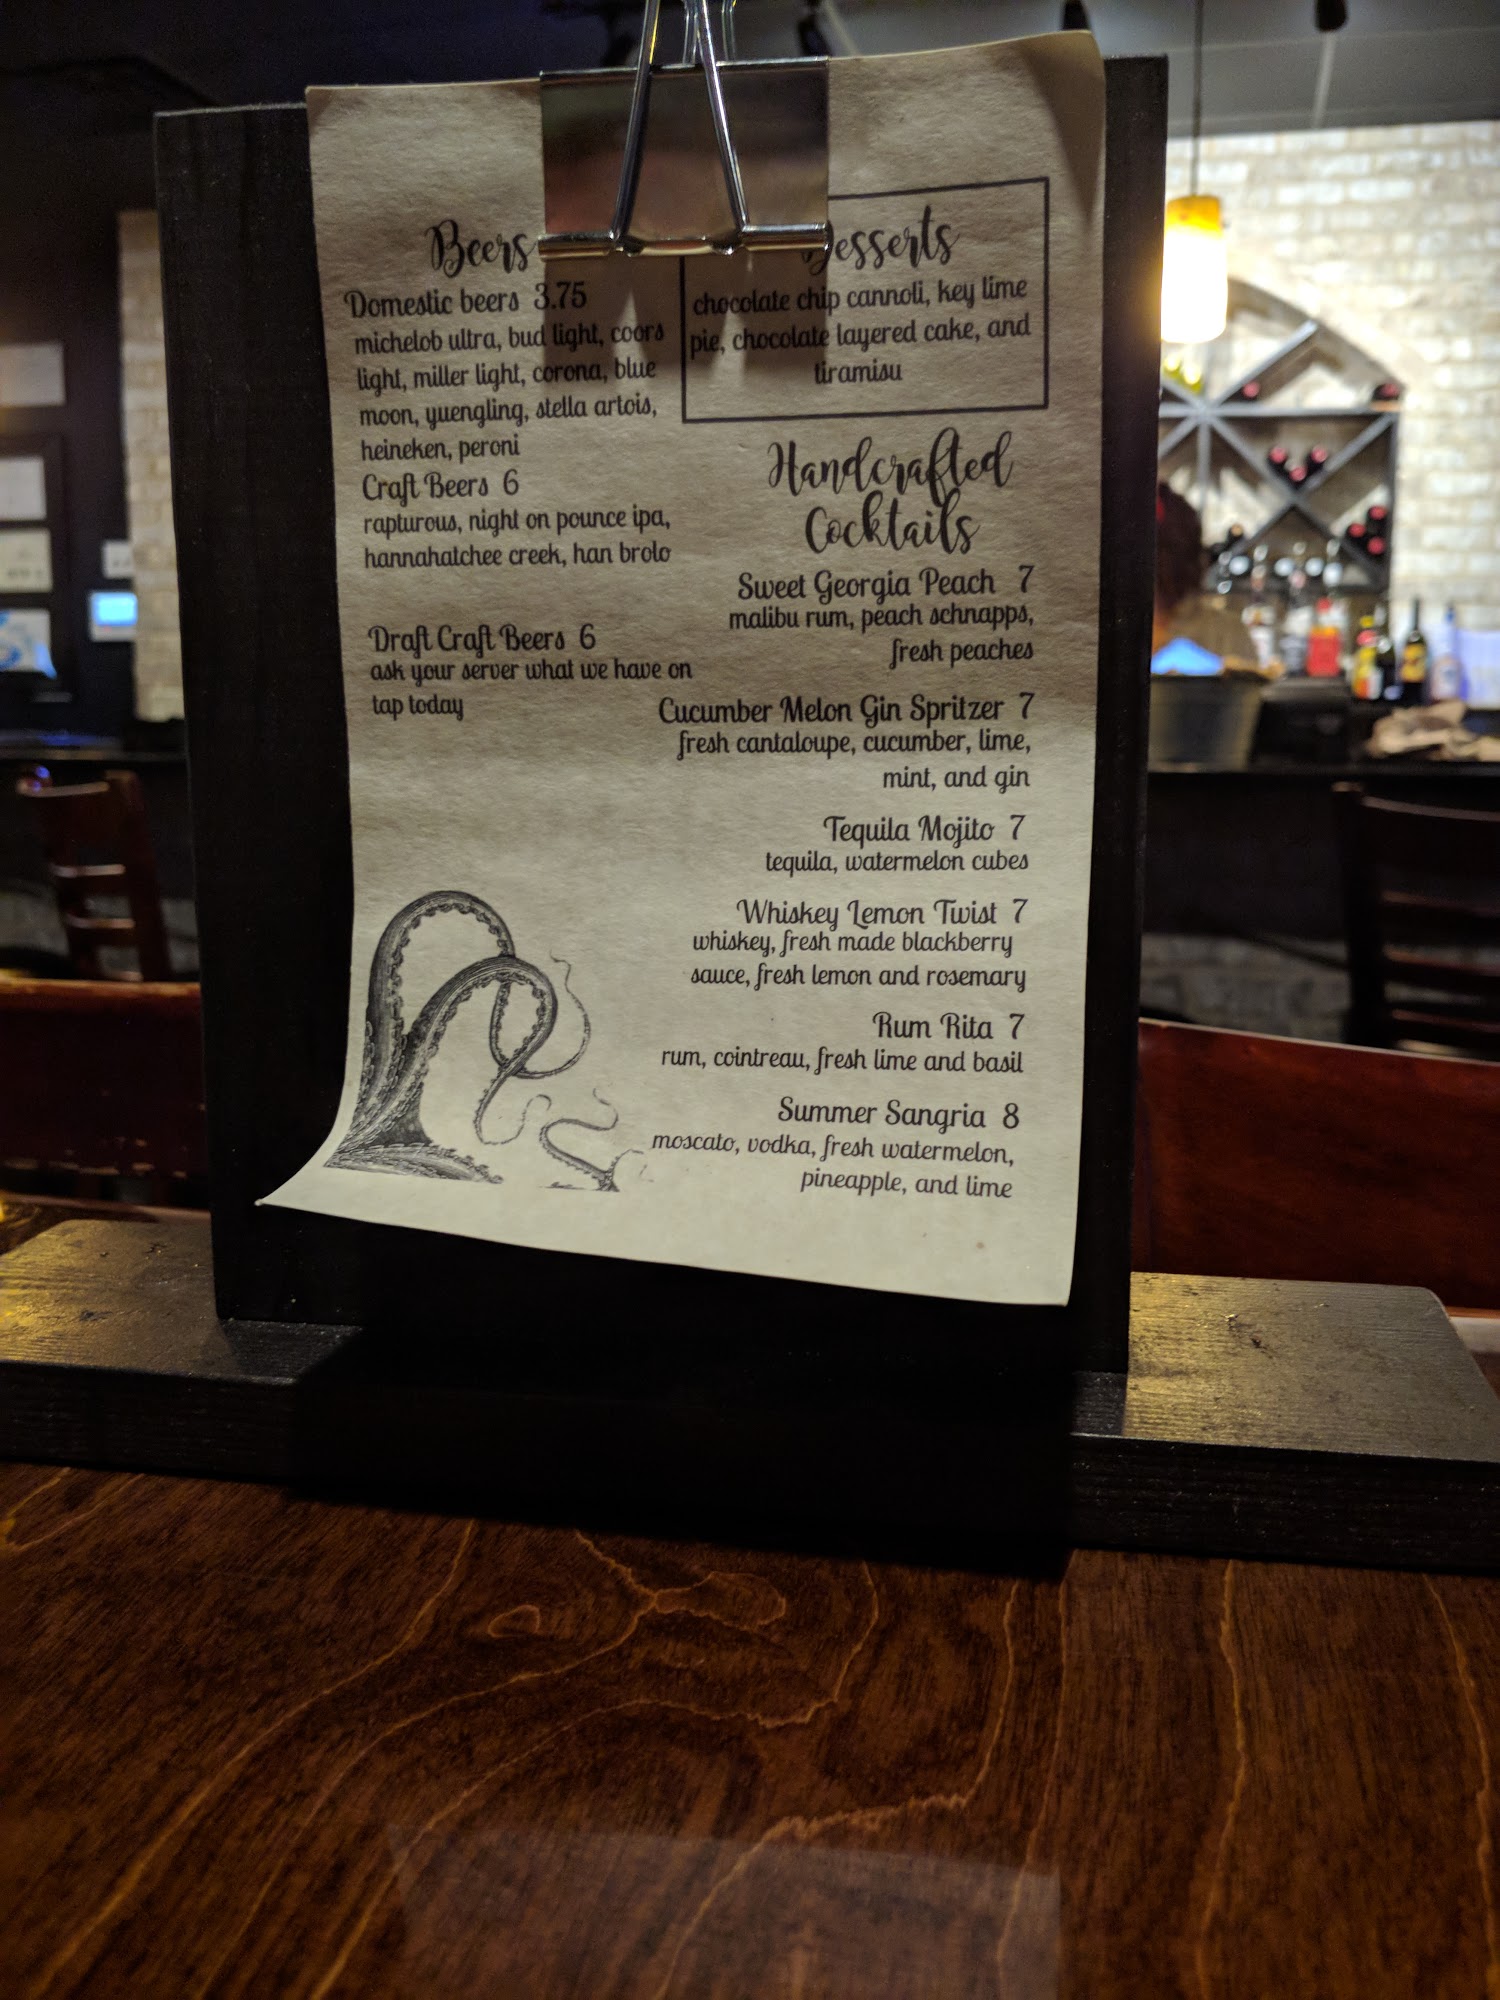 Beers
Domestic beers 3.75
michelob ultra, bud light, coors
light, miller light, corona, blue
moon, yuengling, stella artois,
heineken, peroni
Craft Beers 6
rapturous, night on pounce ipa,
hannahatchee creek, han brolo
Draft Craft Beers 6
ask your server what we have on
tap today
Desserts
chocolate chip cannoli, key lime
pie, chocolate layered cake, and
tiramisu
Handcrafted
Cocktails
Sweet Georgia Peach 7
malibu rum, peach schnapps,
fresh peaches
Cucumber Melon Gin Spritzer 7
fresh cantaloupe, cucumber, lime,
mint, and gin
Tequila Mojito 7
tequila, watermelon cubes
Whiskey Lemon Twist 7
whiskey, fresh made blackberry
sauce, fresh lemon and rosemary
Rum Rita 7
rum, cointreau, fresh lime and basil
Summer Sangria 8
moscato, vodka, fresh watermelon,
pineapple, and lime